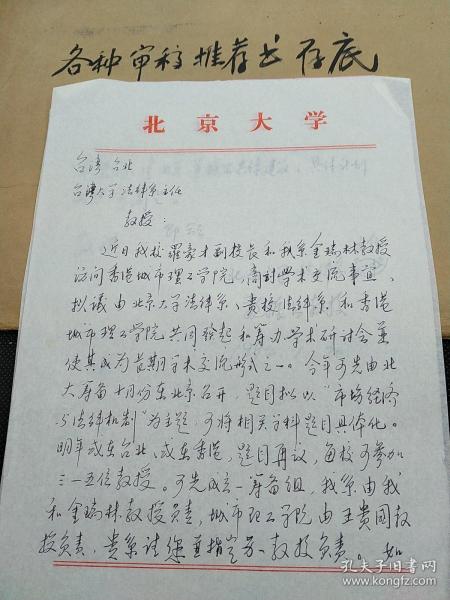 各种审稿推荐书存底
北京大学
台湾 台北
台湾大学法律系主任
教授：
近日我校罗豪才副校长和我系金瑞林教授
访问香港城市理工学院，商讨学术交流事宜，
拟议由北京大学法律系、贵校法律系和香港
城市理工学院共同发起和筹办学术研讨会并
使其成为长期学术交流形式之一。今年可先由北
大筹备十月份在北京召开，题目拟以“市场经济
与法律机制”为主题，可将相关学科题目具体化。
明年或在台北、或在香港，题目再议，每校可参加
三—五位教授。可先成立一筹备组，我系由我
和金瑞林教授负责，城市理工学院由王贵国教
授负责，贵系请您并指定另一教授负责。如
孔夫子旧书网